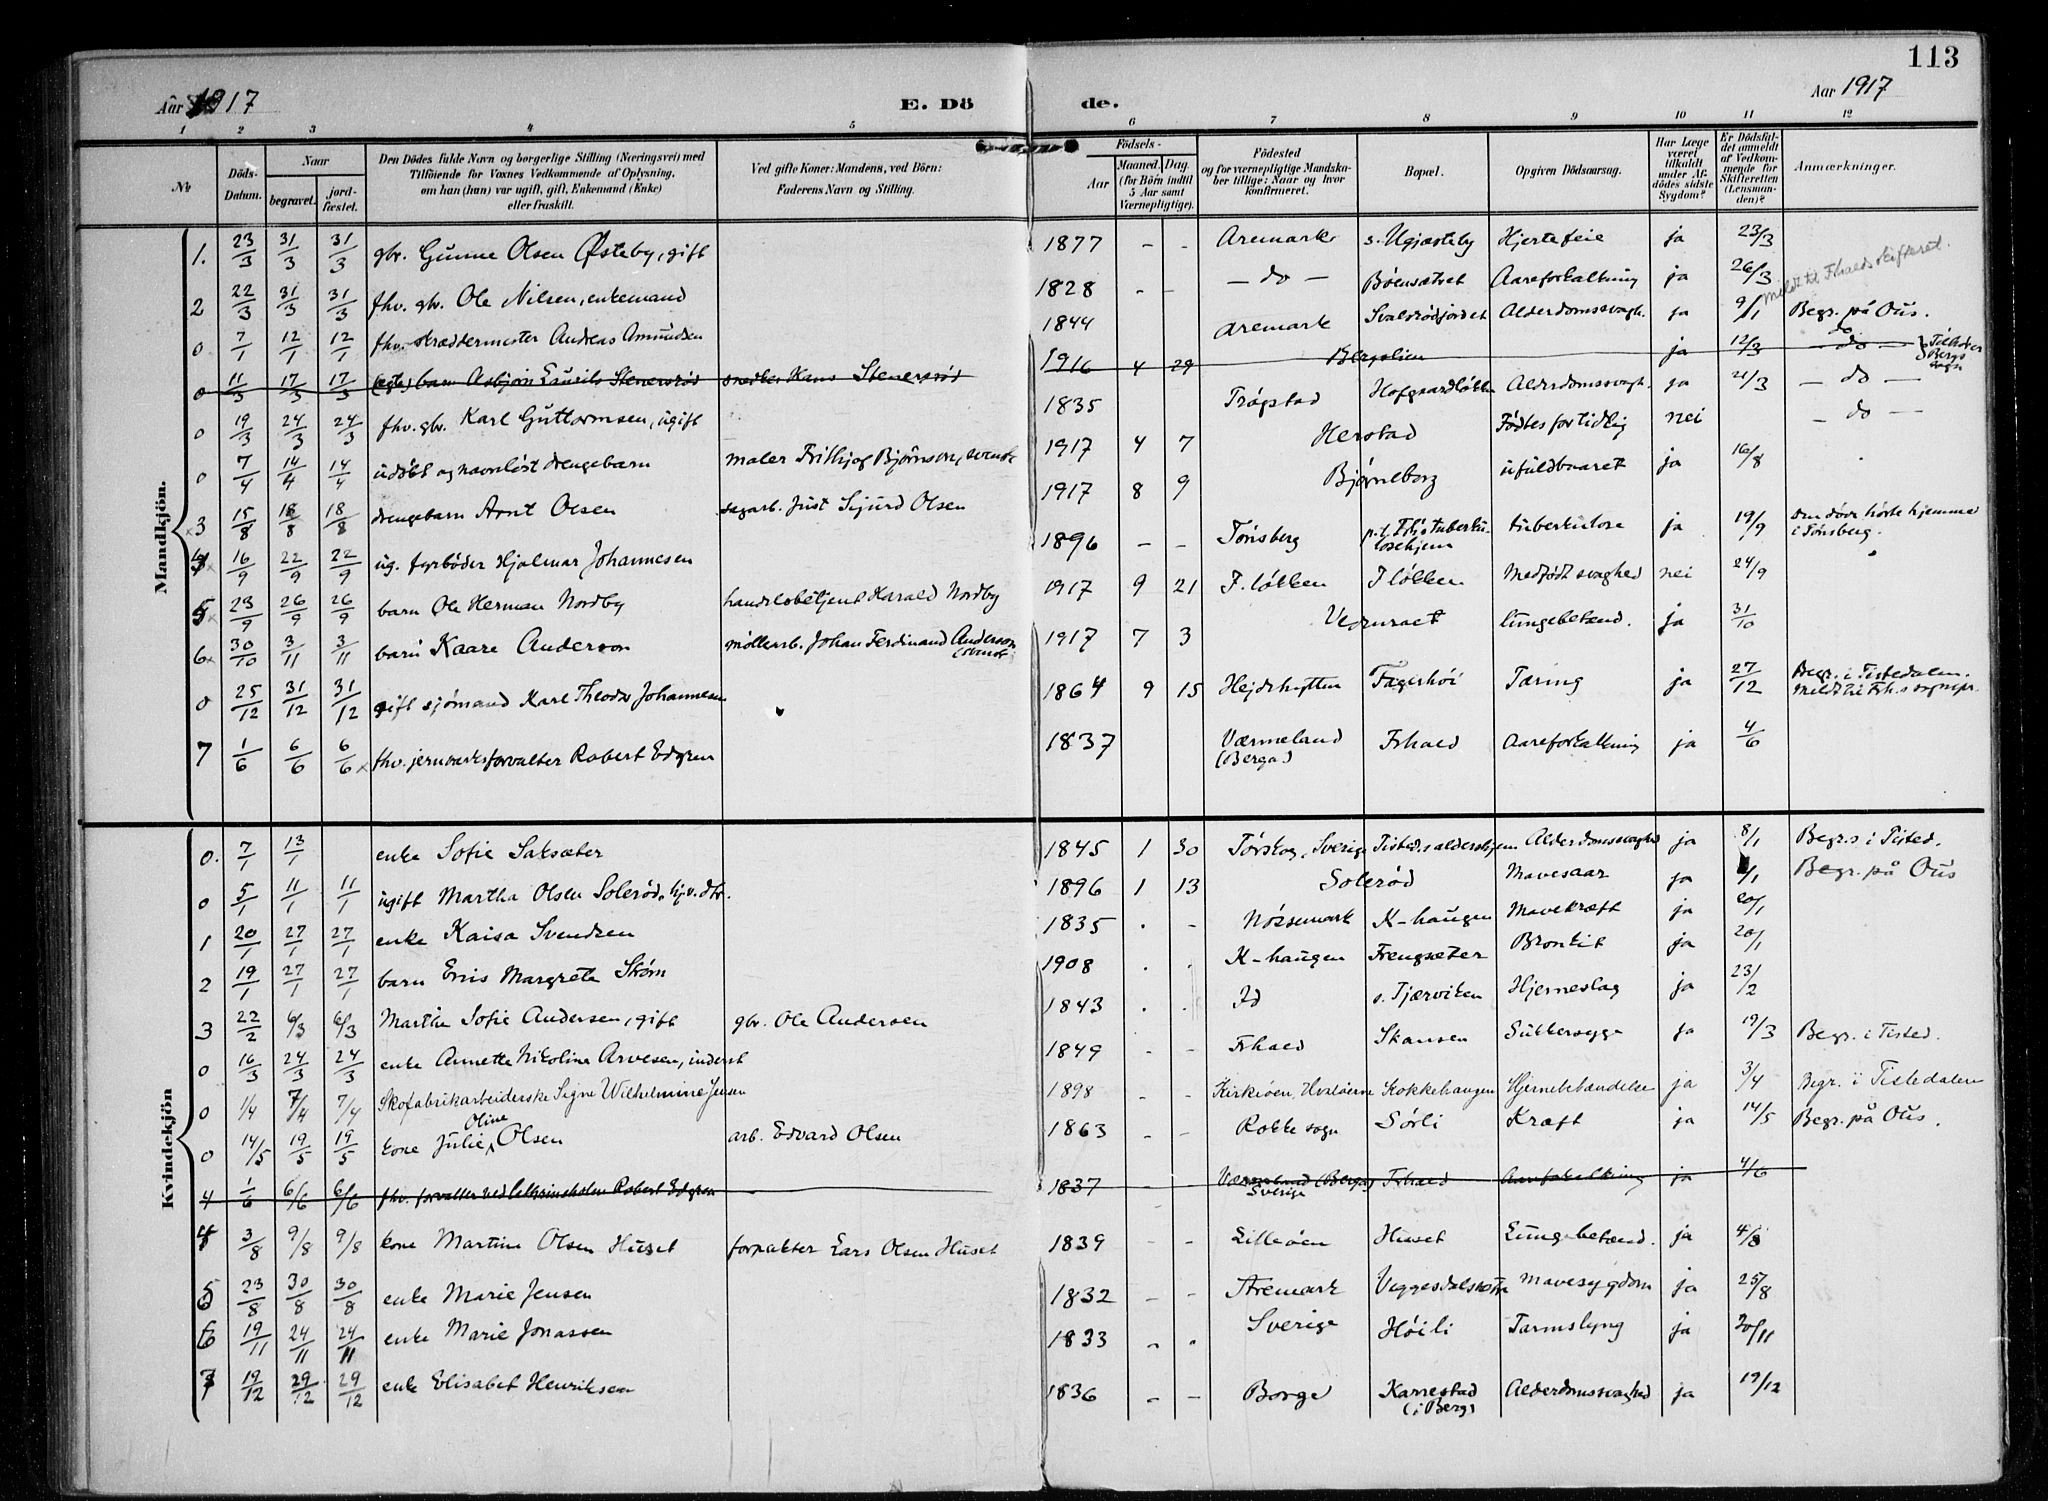 113
Aar 1917 E. Dö de. Aar 1917
1 2 3 4 5 6 7 8 9 10 11 12
No Döds-Datum. Naar begravet. jord-fæstet. Den Dödes fulde Navn og borgerlige Stilling (Næringsvei) med Tilföiende for Voxnes Vedkommende af Oplysning, om han (hun) var ugift, gift, Enkemand (Enke) eller fraskilt. Ved gifte Koner: Mandens, ved Börn: Faderens Navn og Stilling. Födsels- Aar Maaned. Dag. (for Börn indtil 5 Aar samt Værnepligtige). Födested og for værnepligtige Mandskaber tillige: Naar og hvor konfirmeret. Bopæl. Opgiven Dödsaarsag. Har Læge været tilkaldt under Afdödes sidste Sygdom? Er Dödsfaldet anmeldt af Vedkommende for Skifteretten (Lensmanden)? Anmærkninger.
Mandkjön.
1. 23/3 31/3 31/3 gbr. Gunne Olsen Østeby, gift 1877 - - Aremark s. Ugjæsteby Hjertefeie ja 23/3
2 22/3 31/3 31/3 fhv. gbr. Ole Nilsen, enkemand 1828 - - - do - Böensætret Aareforkalkning ja 26/3 Meldt til Fhalds skifteret.
0 7/1 12/1 12/1 fhv. skræddermester Andreas Amundsen 1844 Aremark Svalerödjordet Alderdomssvagh. ja 9/1 Begr. på Ous.
0 11/3 17/3 17/3 (egte) barn Asbjörn Laurits Stenersröd snedker Hans Stenersröd 1916 4 29 Bergslien ja 12/3 - do - Tilhörer Bergs sogn
0 19/3 24/3 24/3 fhv. gbr. Karl Guttormsen, ugift 1835 Trögstad Hofgaardløkken Alderdomssvagh. ja 21/3 - do -
0 7/4 14/4 14/4 udöbt og navnløst drengebarn maler Frithjog Björnson, svensk 1917 4 7 Herstad Födtes for tidlig nei - do -
3 15/8 18/8 18/8 drengebarn Arnt Olsen sagarb. Just Sigurd Olsen 1917 8 9 Björneborg ufuldbaaret ja 16/8
4 16/9 22/9 22/9 ug. fyrböder Hjalmar Johannesen 1896 - - Tönsberg p.t. Fh.s tuberkulosehjem tuberkulose ja 19/9 Den döde hörte hjemme i Tönsberg.
5 23/9 26/9 26/9 barn Ole Herman Nordby handelsbetjent Harald Nordby 1917 9 21 F. løkken F løkken Medfödt svaghed nei 24/9
6 30/10 3/11 3/11 barn Kaare Anderson möllearb. Johan Ferdinand Anderson (svensk) 1917 7 3 lungebetænd. ja 31/10
0 25/12 31/12 31/12 gift sjömand Karl Theodor Johannesen 1864 9 15 Hejdehytten Fagerhöi Tæring ja 27/12 Begr. i Tistedalen. Meldt til Frh.s sognepr.
7 1/6 6/6 6/6 fhv. jernværksforvalter Robert Edgren 1837 Værmeland (Berga) Frhald Aareforkalkning ja 4/6
Kvindekjön
0. 7/1 13/1 enke Sofie Saksæter 1845 1 30 Törskog, Sverige Tisted.s aldershjem Alderdomssvaghed ja 8/1 Begr.s i Tisted.
0 5/1 11/1 11/1 ugift Martha Olsen Soleröd, hjv. dtr. 1896 1 13 Soleröd Mavesaar ja /1 Begr. på Ous
1 20/1 27/1 27/1 enke Kaisa Svendsen 1835 . - Nössemark K-haugen Mavekræft ja 20/1
2 19/1 27/1 27/1 barn Enis Margrete Skörn 1908 . . K-haugen Frengsæter Bronkit ja 20/1
3 22/2 6/3 6/3 Marthe Sofie Andersen, gift gbr. Ole Andersen 1843 . . Id s. Tjærviken Hjerneslag ja 23/2
0 16/3 24/3 24/3 enke Annette Nikoline Arvesen, inderst 1849 - - Frhald Skansen Sukkersyge ja 19/3 Begr. i Tisted.
0 1/4 7/4 7/4 Skofabrikarbeiderske Signe Wilhelmine Jensen 1898 - - Kirköen, Hvaløerne Kokkehaugen Hjernebetændelse ja 3/4 Begr. i Tistedalen
0 14/5 19/5 19/5 kone Julie Oline Olsen arb. Edvard Olsen 1863 - - Rokke sogn Sörli Kræft ja 14/5 Begr. på Ous.
4 1/6 6/6 6/6 fhv. forvalter ved Cathrineholm Robert Edgren 1837 - - Værmeland (Berga) Sverige Frhald Aareforkalkning ja 4/6
4 3/8 9/8 9/8 kone Martine Olsen Huset forpakter Lars Olsen Huset 1839 - - Lilleöen Huset Lungebetænd. ja 4/8
5 23/8 30/8 30/8 enke Marie Jensen 1832 - - Aremark Mavesygdom ja 25/8
6 19/11 24/11 24/11 enke Marie Jonassen 1833 - . Sverige Höili Tarmslyng ja 20/11
7 19/12 29/12 29/12 enke Elisabet Henriksen 1836 - - Borge Karrestad (i Berg) Alderdomssvaghed ja 19/12